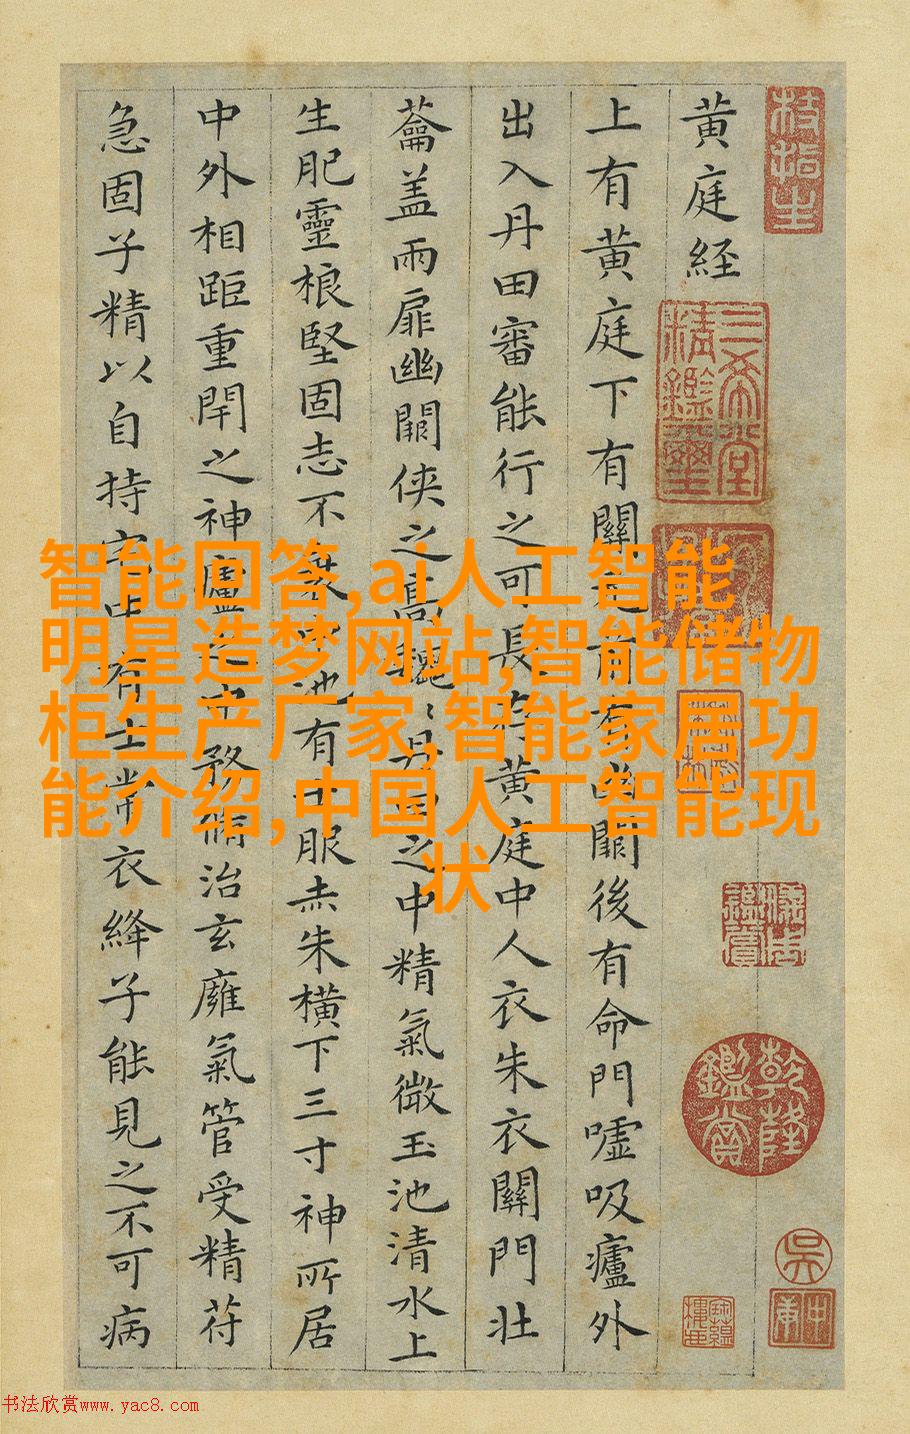 黄庭経
上有黄庭下有關元前有幽闕後有命門嘘吸廬外
出入丹田審能行之可長存黄庭中人衣朱衣關門壯
蘥盖兩扉幽闕侠之高巍〻丹田之中精氣微玉池清水上
生肥靈根堅固志不衰中池有士服赤朱横下三寸神所居
中外相距重閈之神廬之中務脩治玄廱氣管受精苻
急固子精以自持宅中有士常衣絳子能見之不可病
三希堂精鑑璽
乾隆鑑賞
吳
智能回答,ai人工智能
明星造梦网站,智能储物
柜生产厂家,智能家居功
能介绍,中国人工智能现
状
书法欣赏www.yac8.com